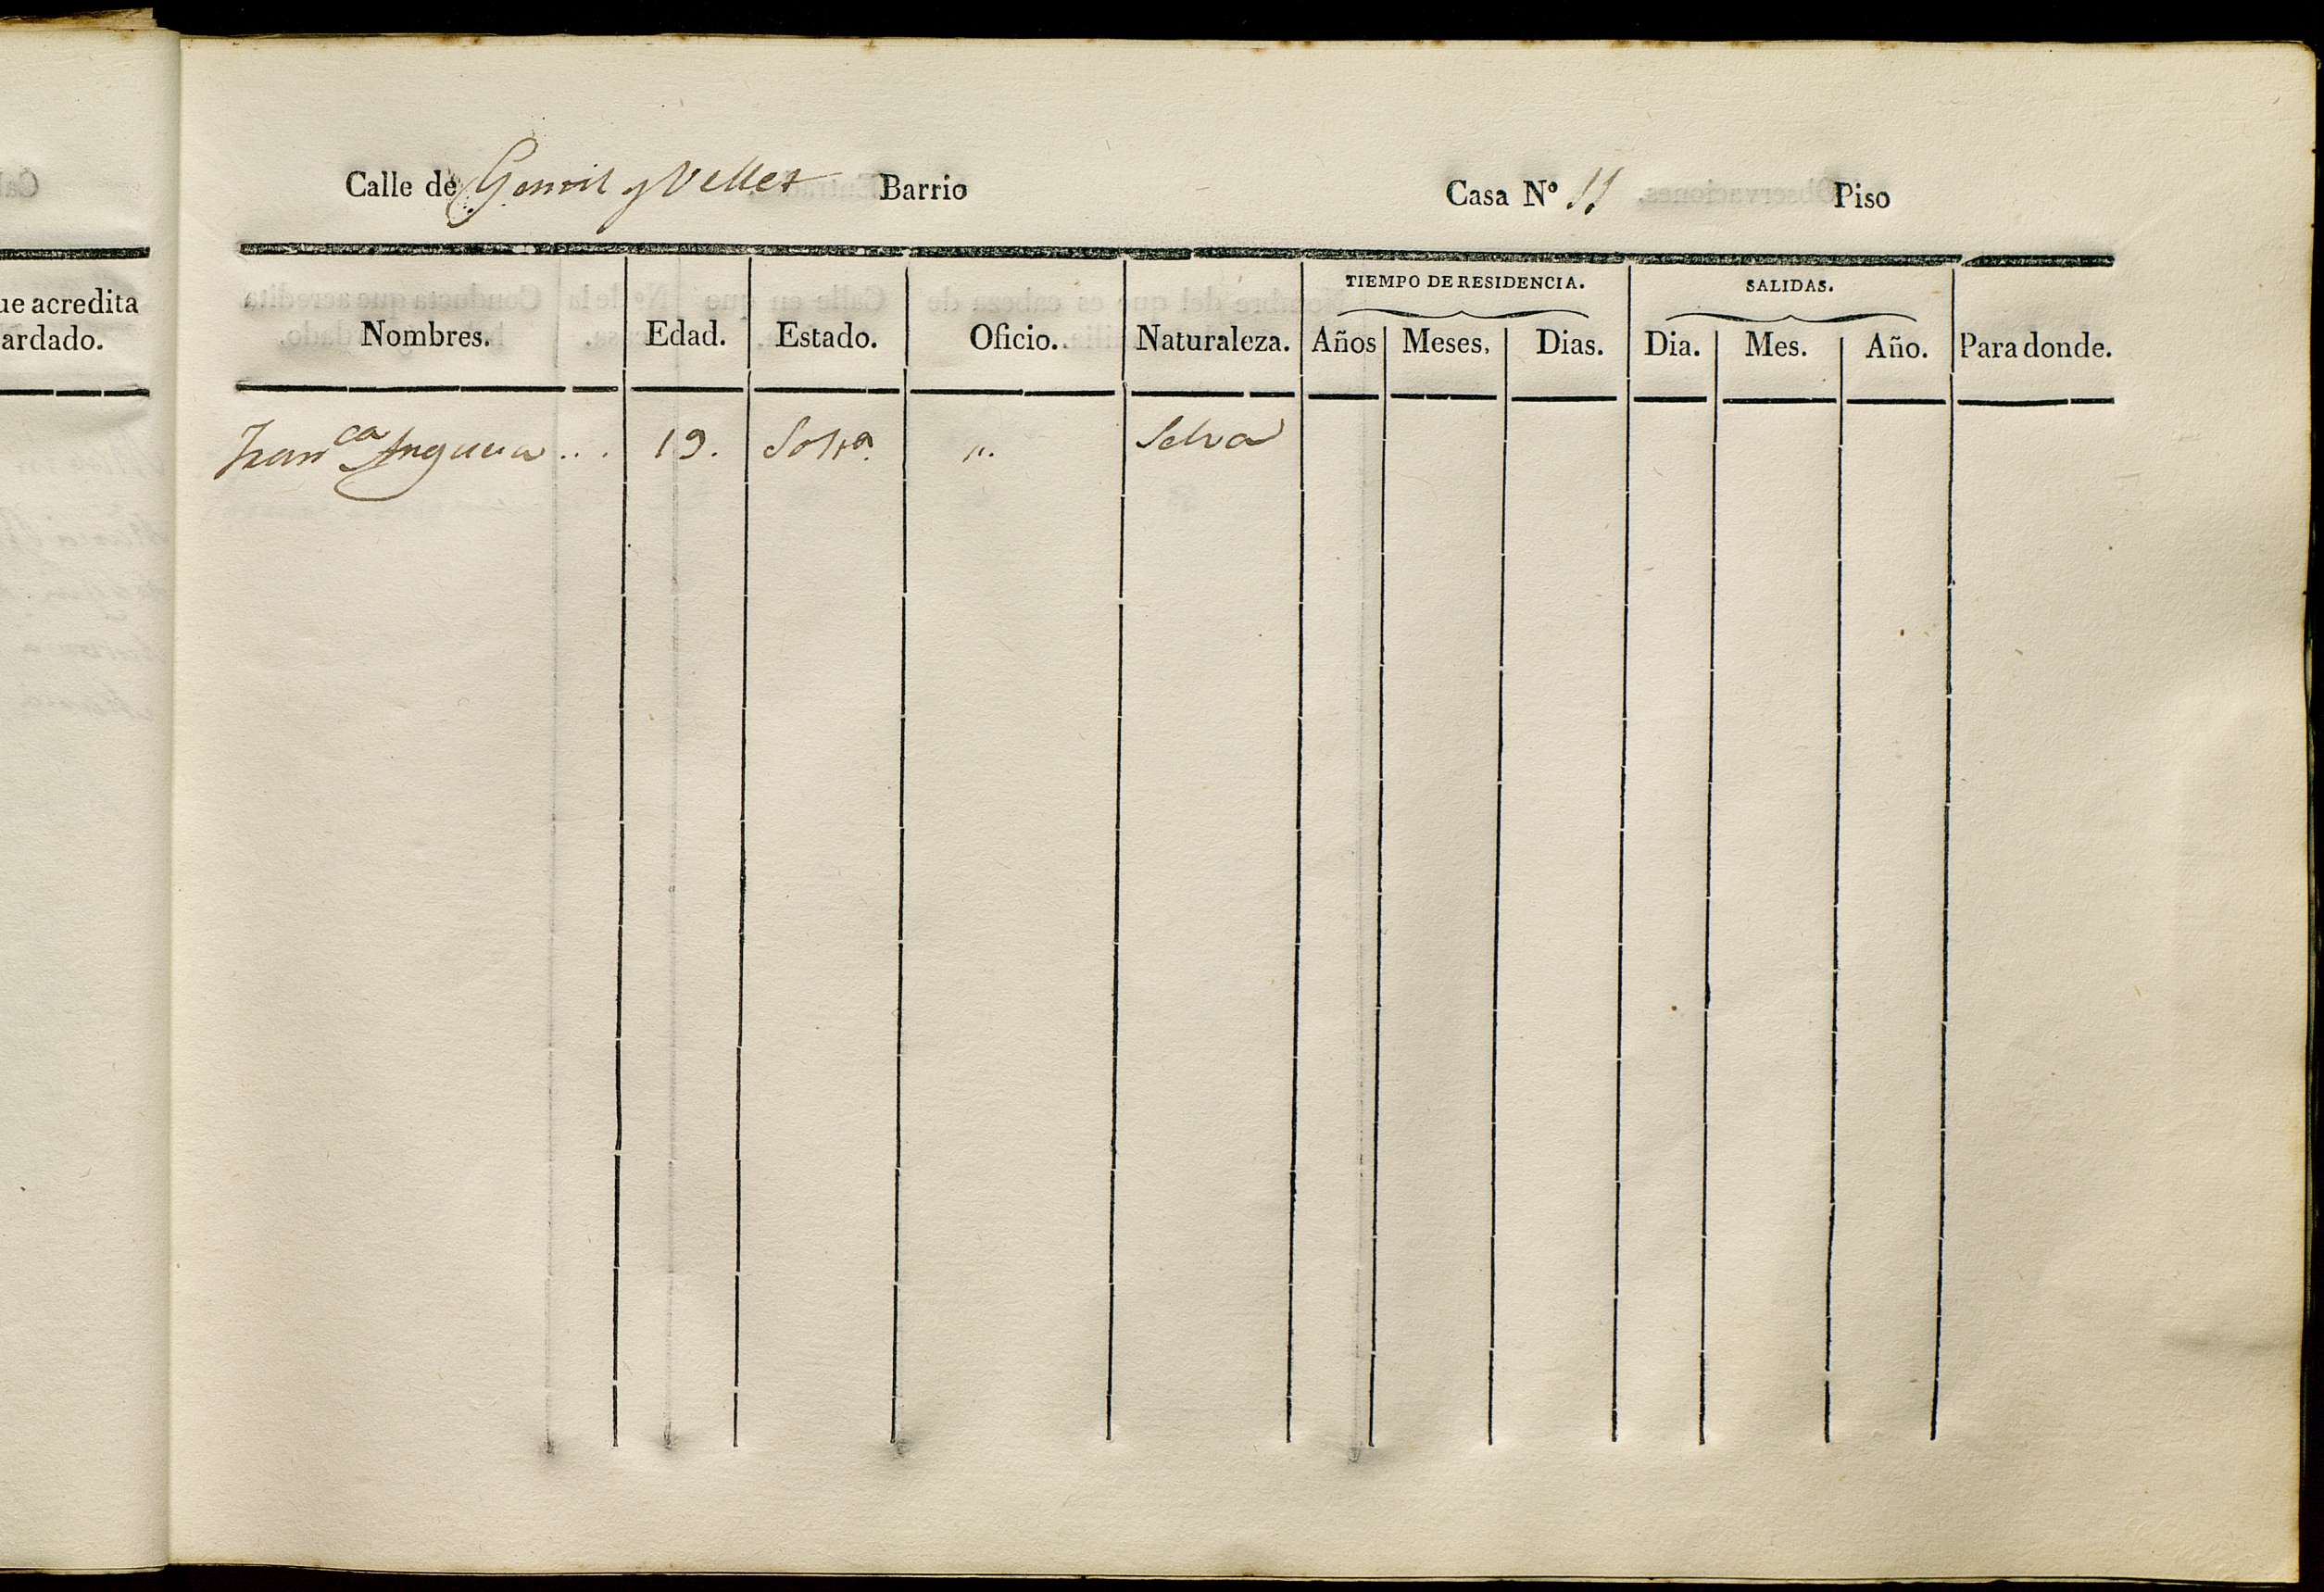 ue acredita
ardado.
Calle de Gomil y Vellet Barrio Casa Nº 11 Piso
Nombres. Edad. Estado. Oficio. Naturaleza. TIEMPO DE RESIDENCIA. SALIDAS. Para donde.
Años Meses. Dias. Dia. Mes. Año.
Franca 19. Solta. ". Selva